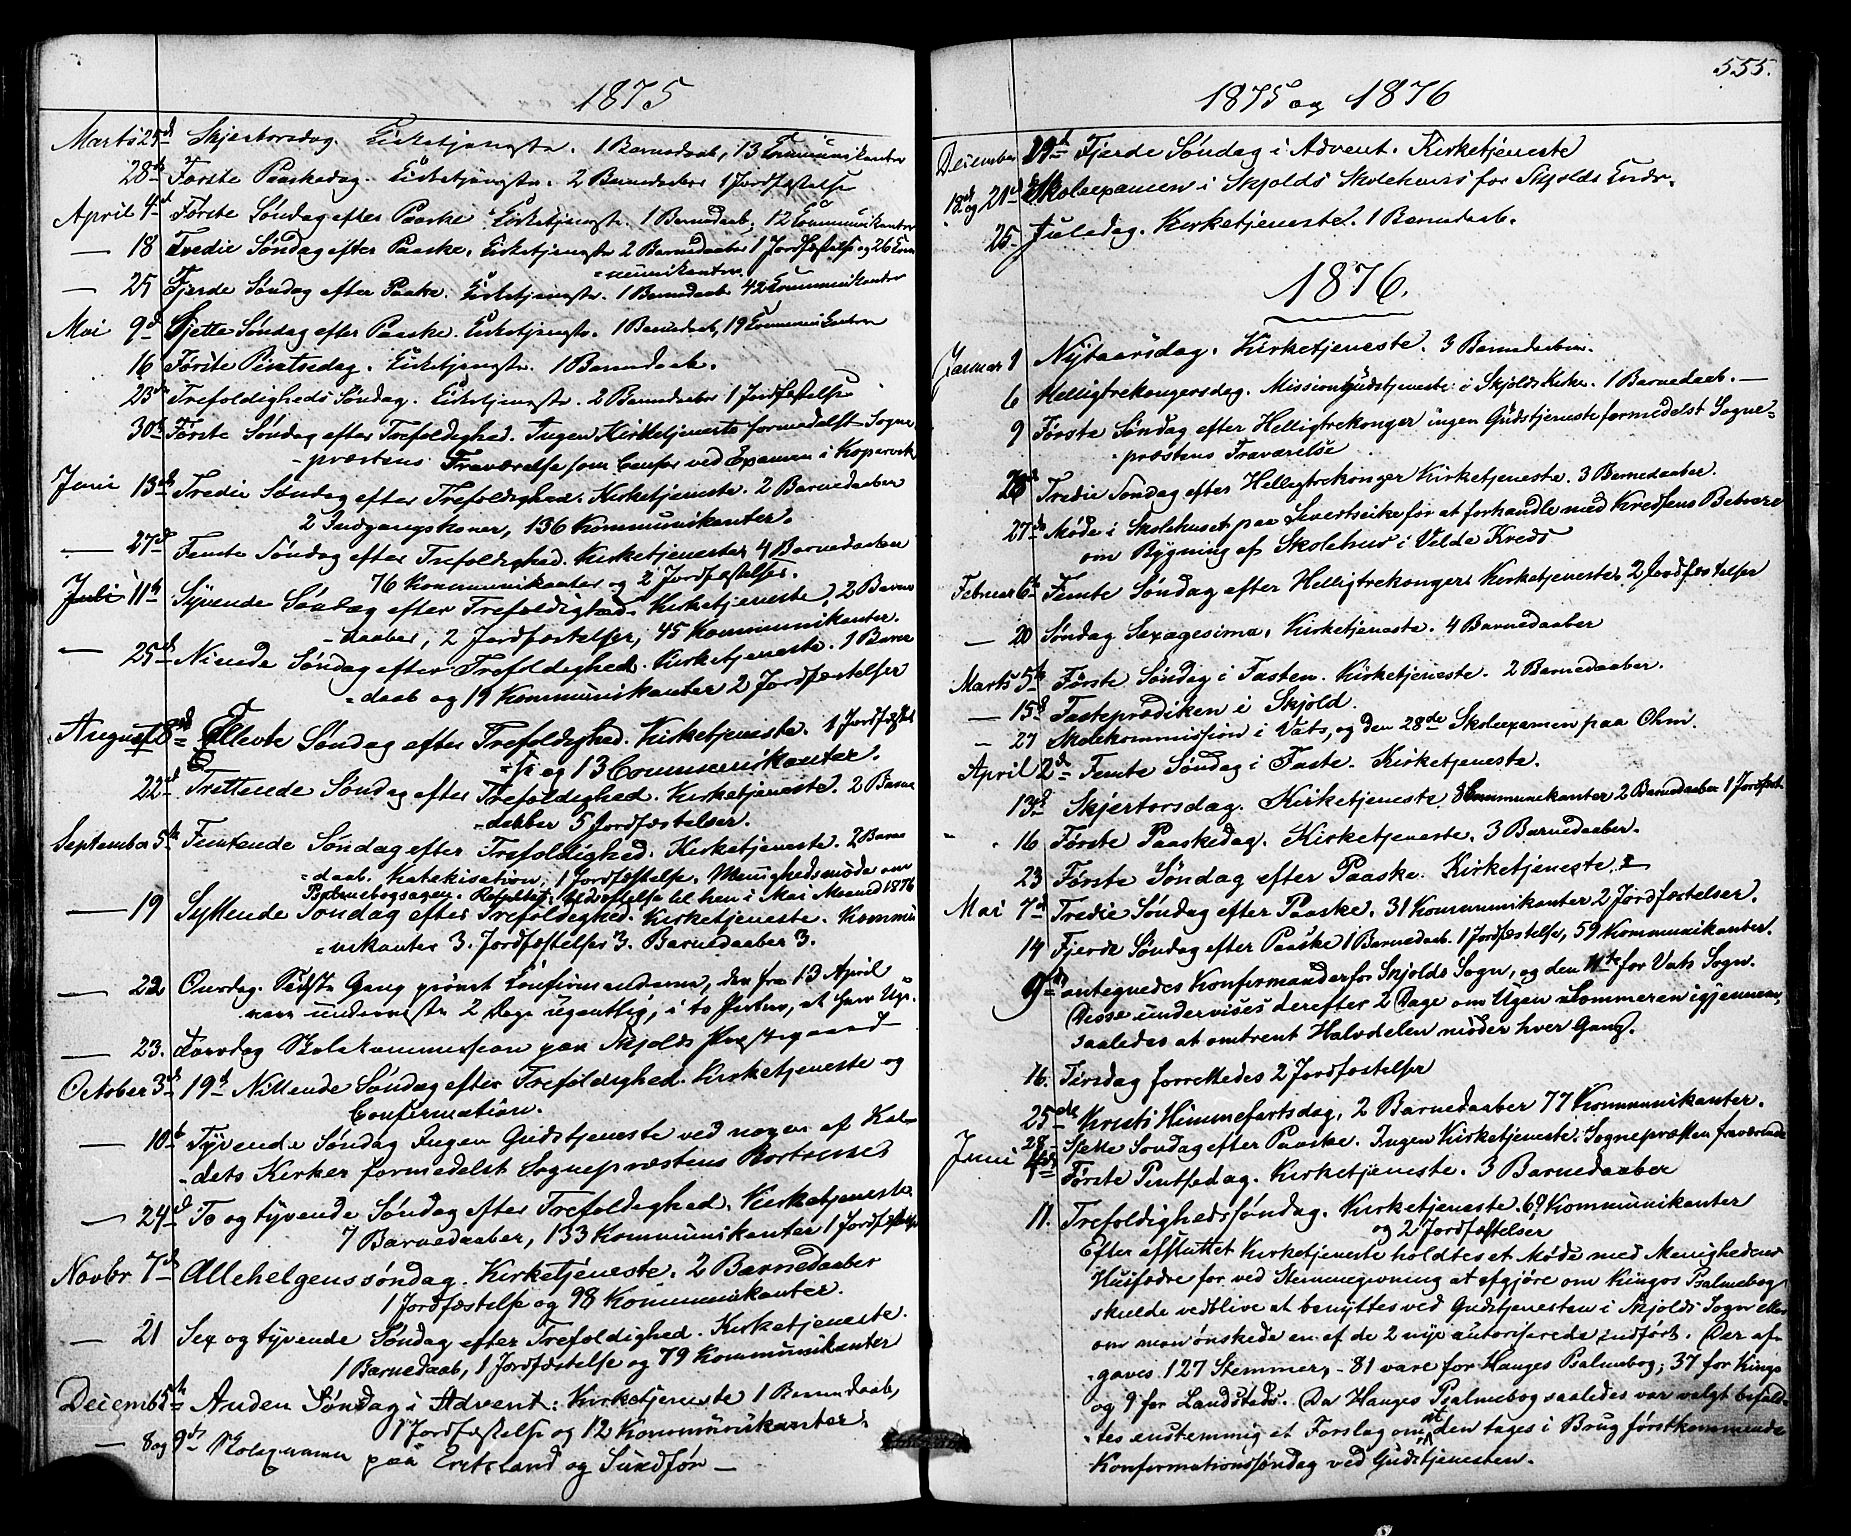 1875
Marts 25de Skjertorsdag. Kirketjeneste. 1 Barnedaab, 13 Communikanter
28de Første Paaskedag. Kirketjeneste. 2 Barnedaaber 1 Jordfæstelse
April 4de Første Søndag efter Paaske. Kirketjeneste. 1 Barnedaab, 12 Communikanter
— 18 Tredie Søndag efter Paaske. Kirketjeneste 2 Barnedaaber 1 Jordfæstelse og 26 Com
=munikanter
— 25 Fjerde Søndag efter Paaske. Kirketjeneste. 1 Barnedaab 42 Communikanter
Mai 9de Sjette Søndag efter Paaske. Kirketjeneste. 1 Barnedaab, 19 Communikanter
16 Første Pintsedag. Kirketjeneste. 1 Barnedaab.
23de Trefoldigheds Søndag. Kirketjeneste. 2 Barnedaaber 1 Jordfæstelse
30te Første Søndag efter Trefoldighed. Ingen Kirketjeneste formedelst Sogne
=præstens Fraværelse som Censor ved Examen i Kopervik
Juni 13de Tredie Søndag efter Trefoldighed. Kirketjeneste. 2 Barnedaaber
2 Indgangskoner, 136 Kommunikanter.
— 27de Femte Søndag efter Trefoldighed. Kirketjeneste 4 Barnedaaber
76 Kommunikanter og 2 Jordfæstelser.
Juli 11te Syvende Søndag efter Trefoldighed. Kirketjeneste, 2 Barne
=daaber, 2 Jordfæstelser, 45 Kommunikanter.
— 25de Niende Søndag efter Trefoldighed. Kirketjeneste. 1 Barne
=daab og 19 Kommunikanter 2 Jordfæstelser
August 8de Ellevte Søndag efter Trefoldighed. Kirketjeneste. 1 Jordfæstel
=se og 13 Communikanter.
22de Trettende Søndag efter Trefoldighed. Kirketjeneste. 2 Barne
=daaber 5 Jordfæstelser.
September 5te Femtende Søndag efter Trefoldighed. Kirketjeneste. 2 Barne
=daab. Katekisation, 1 Jordfæstelse. Menighedsmøde om
Psalmebogsagen. Udsættelse til hen i Mai Maaned 1876
— 19 Syttende Søndag efter Trefoldighed. Kirketjeneste. Kommu
=nikanter 3. Jordfæstelser 3. Barnedaaber 3.
— 22 Onsdag. Sidste Gang prøvet Confirmanderne, der fra 13 April
vare underviste 2 Dage ugentlig, i to Partier,
— 23. Torsdag Skolekommission paa Skjolds Præstegaard
October 3de 19de Nittende Søndag efter Trefoldighed. Kirketjeneste og
Confirmation.
— 10de Tyvende Søndag Ingen Gudstjeneste ved nogen af Kal-
=dets Kirker formedelst Sognepræstens Bortreise
— 24de To og tyvende Søndag efter Trefoldighed. Kirketjeneste
7 Barnedaaber, 133 Kommunikanter 1 Jordfæstelse
Novbr 7de Allehelgens søndag. Kirketjeneste. 2 Barnedaaber
1 Jordfæstelse og 98 Kommunikanter.
— 21 Sex og tyvende Søndag efter Trefoldighed. Kirketjeneste.
1 Barnedaab, 1 Jordfæstelse og 79 Kommunikanter
Decemb 5te Anden Søndag i Advent: Kirketjeneste 1 Barnedaab,
1 Jordfæstelse og 12 Kommunikanter.
— 8 og 9de Skolexamen paa og Sundfør —
555.
1875 og 1876
December 19de Fjerde Søndag i Advent. Kirketjeneste
18de og 21de Skoleexamen i Skjolds Skolehuus for Skjolds
25 Juledag. Kirketjeneste. 1 Barnedaab.
1876.
Januar 1 Nytaarsdag. Kirketjeneste. 3 Barnedaaber.
6 Helligtrekongersdag. Missionsgudstjeneste i Skjolds Kirke. 1 Barnedaab. —
9 Første Søndag efter Helligtrekonger ingen Gudstjeneste formedelst Sogne=
=præstens Fraværelse
23de Tredie Søndag efter Helligtrekonger Kirketjeneste. 3 Barnedaaber.
27de Møde i Skolehuset paa for at forhandle med Kredsens Beboere
om Bygning af Skolehus i Kreds
Februar 6te Femte Søndag efter Helligtrekonger Kirketjeneste, 2 Jordfæstelser
— 20 Søndag Sexagesima. Kirketjeneste. 4 Barnedaaber
Marts 5te Første Søndag i Fasten. Kirketjeneste. 2 Barnedaaber.
— 15de Fasteprædiken i Skjold.
— 27 Skolekommission i Vats, og den 28de Skoleexamen paa
April 2de Femte Søndag i Faste. Kirketjeneste.
13de Skjertorsdag. Kirketjeneste. 8 Communikanter 2 Barnedaaber 1 Jordfæst.
16 Første Paaskedag. Kirketjeneste. 3 Barnedaaber.
23 Første Søndag efter Paaske. Kirketjeneste.
Mai 7de Tredie Søndag efter Paaske. 31 Kommunikanter 2 Jordfæstelser.
14 Fjerde Søndag efter Paaske 1 Barnedaab. 1 Jordfæstelse, 59 Kommunikanter.
9de antegnedes Konfirmander for Skjolds Sogn, og den 11te for Vats Sogn.
Disse undervises derefter 2 Dage om Ugen Sommeren igjennem,
saaledes at omtrent Halvdelen møder hver Gang.
16. Tirsdag forrettedes 2 Jordfæstelser
25de Kristi Himmelfartsdag, 2 Barnedaaber 77 Kommunikanter.
28 Sjette Søndag efter Paaske. Ingen Kirketjeneste. Sognepræsten fraværende
Juni 4de Første Pintsedag. Kirketjeneste. 3 Barnedaaber
11. Trefoldighedssøndag. Kirketjeneste. 69 Kommunikanter
og 2 Jordfæstelser
Efter afsluttet Kirketjeneste holdtes et Møde med Menighedens
Husfædre for ved Stemmegivning at afgjøre om Kingos Psalmebog
skulde vedblive at benyttes ved Gudstjenesten i Skjolds Sogn eller
om man ønskede en af de 2 nye autoriserede indført. Der af-
=gaves 127 Stemmer, – 81 vare for Hauges Psalmebog; 37 for Kingo
og 9 for Landstads. Da Hauges Psalmebog saaledes var valgt beslut-
=tes enstemmig et Forslag om at den tages i Brug førstkommende
Konfirmationssøndag ved Gudstjenesten.